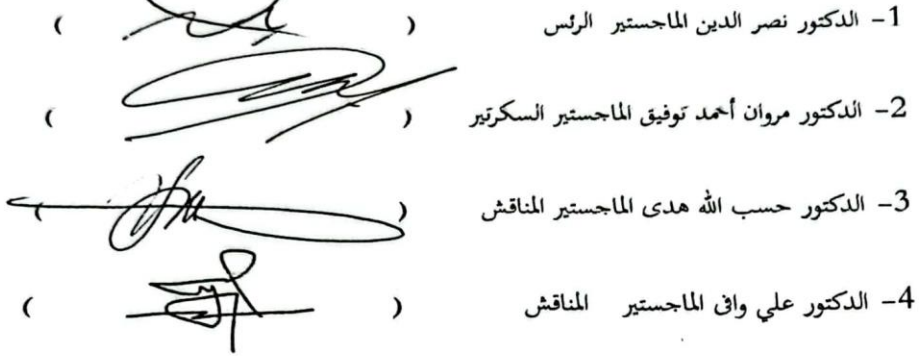 1- الدكتور نصر الدين الماجستير الرئس ( )
2- الدكتور مروان أحمد توفيق الماجستير السكرتير ( )
3- الدكتور حسب الله هدى الماجستير المناقش ( )
4- الدكتور علي وافى الماجستير المناقش ( )